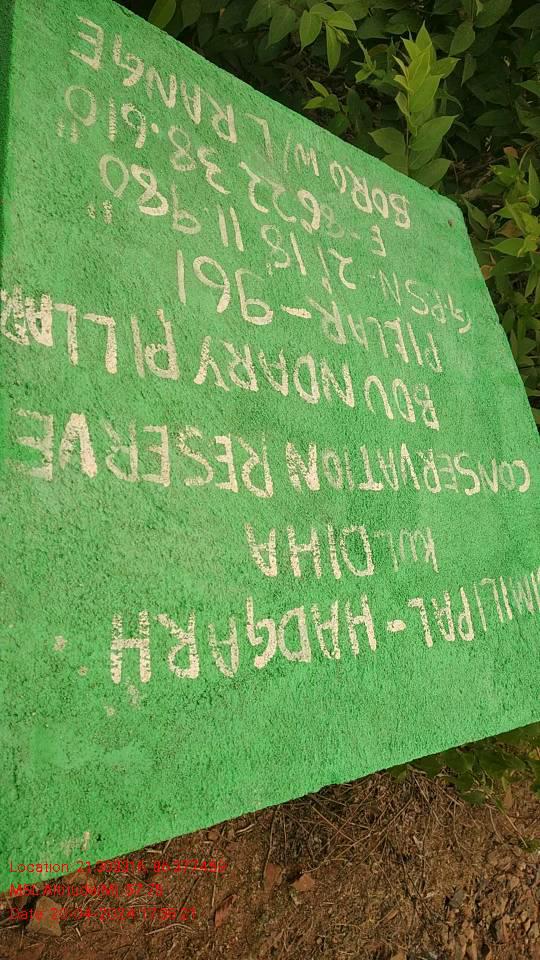 IMILIPAL-HADGARH
KULDIHA
CONSERVATION RESERVE
BOUNDARY PILLAR
PILLAR-961
GPSN-21'18'11.980"
E-86 22 38.610"
BORO W/L RANGE
Location:
Date: 20-04-2024